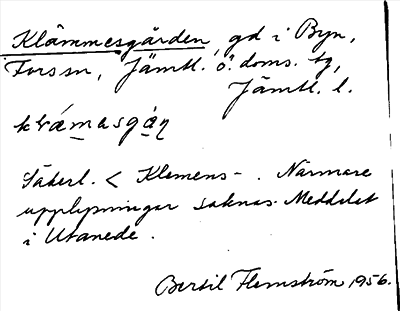 Klämmesgården, gd i Byn,
Forssn, Jämtl. ö. doms. tg,
Jämtl. l.
klämasgáɳ
Säkerl. < Klemens- . Närmare
upplysningar saknas. Meddelat
i Utanede.
Bertil Flemström 1956.